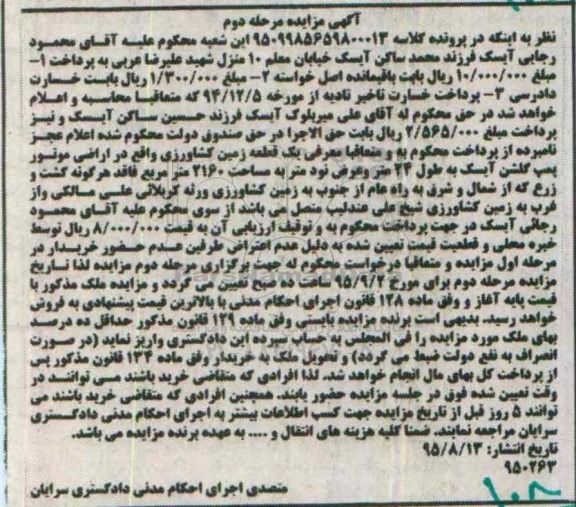 آگهی مزایده مرحله دوم
نظر به اینکه در پرونده کلاسه ۹۵۰۹۹۸۵۶۵۹۸۰۰۰۱۳ این شعبه محکوم علیه آقای محمود
رجایی آیسک فرزند محمد ساکن آیسک خیابان معلم ۱۰ منزل شهید علیرضا عربی به پرداخت ۱-
مبلغ ۱۰/۰۰۰/۰۰۰ ریال بابت باقیمانده اصل خواسته ۲- مبلغ ۱/۳۰۰/۰۰۰ ریال بابت خسارت
دادرسی ۳- پرداخت خسارت تاخیر تادیه از مورخه ۹۴/۱۲/۵ که متعاقبا محاسبه و اعلام
خواهد شد در حق محکوم له آقای علی میربلوک آیسک فرزند حسین ساکن آیسک و نیز
پرداخت مبلغ ۲/۵۶۵/۰۰۰ ریال بابت حق الاجرا در حق صندوق دولت محکوم شده اعلام عجز
نامبرده از پرداخت محکوم به و متعاقبا معرفی یک قطعه زمین کشاورزی واقع در اراضی موتور
پمپ گلشن آیسک به طول ۲۴ متر وعرض نود متر به مساحت ۲۱۶۰ متر مربع فاقد هرگونه کشت و
زرع که از شمال و شرق به راه عام از جنوب به زمین کشاورزی ورثه کربلائی علی مالکی واز
غرب به زمین کشاورزی شیخ علی عندلیب متصل می باشد از سوی محکوم علیه آقای محمود
رجائی آیسک در جهت پرداخت محکوم به و توقیف ارزیابی آن به قیمت ۸/۰۰۰/۰۰۰ ریال توسط
خبره محلی و قطعیت قیمت تعیین شده به دلیل عدم اعتراض طرفین عدم حضور خریدار در
مرحله اول مزایده و متعاقبا درخواست محکوم له جهت برگزاری مرحله دوم مزایده لذا تاریخ
مزایده مرحله دوم برای مورخ ۹۵/۹/۴ ساعت ده صبح تعیین می گردد و مزایده ملک مذکور با
قیمت پایه آغاز و وفق ماده ۱۲۸ قانون اجرای احکام مدنی با بالاترین قیمت پیشنهادی به فروش
خواهد رسید. بدیهی است برنده مزایده بایستی وفق ماده ۱۲۹ قانون مذکور حداقل ده درصد
بهای ملک مورد مزایده را فی المجلس به حساب سپرده این دادگستری واریز نماید (در صورت
انصراف به نفع دولت ضبط می گردد) و تحویل ملک به خریدار وفق ماده ۱۳۴ قانون مذکور پس
از پرداخت کل بهای مال انجام خواهد شد. لذا افرادی که متقاضی خرید باشند می توانند در
وقت تعیین شده فوق در جلسه مزایده حضور یابند. همچنین افرادی که متقاضی خرید باشند می
توانند ۵ روز قبل از تاریخ مزایده جهت کسب اطلاعات بیشتر به اجرای احکام مدنی دادگستری
سرایان مراجعه نمایند. ضمنا کلیه هزینه های انتقال و .... به عهده برنده مزایده می باشد.
تاریخ انتشار: ۹۵/۸/۱۳
۹۵۰۲۶۳
متصدی اجرای احکام مدنی دادگستری سرایان